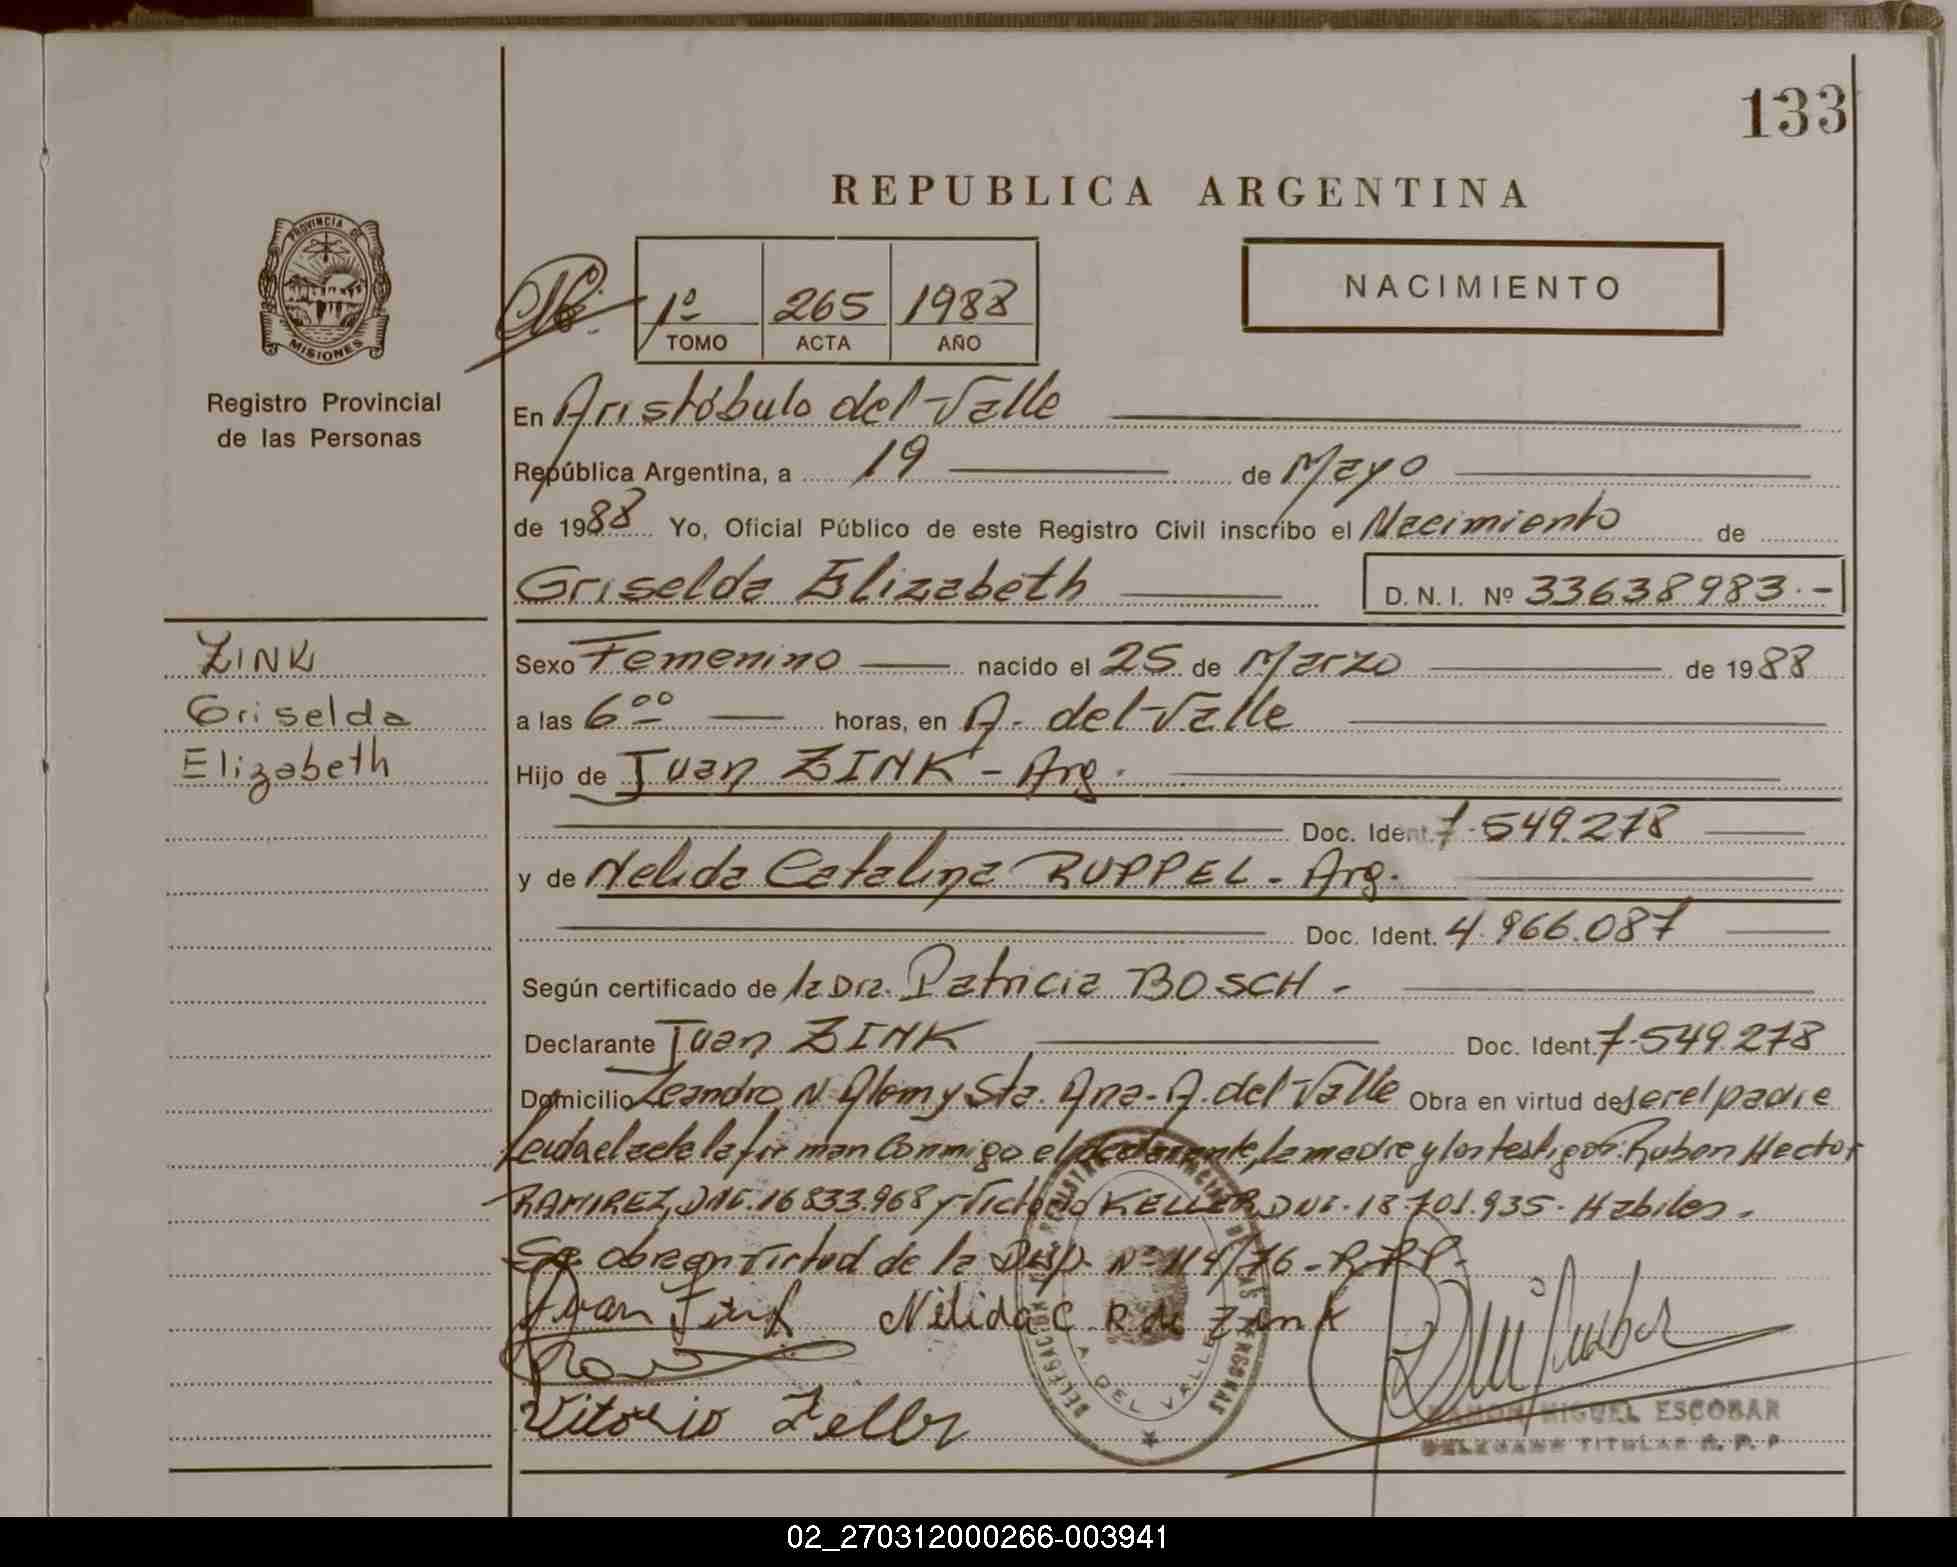 133
REPUBLICA ARGENTINA
PROVINCIA DE
MISIONES
Registro Provincial
de las Personas
1º 265 1988
TOMO ACTA AÑO
NACIMIENTO
En Aristóbulo del Valle
República Argentina, a 19 de Mayo
de 1988 Yo, Oficial Público de este Registro Civil inscribo el Nacimiento de
Griselda Elizabeth D. N. I. Nº 33638983.-
ZINK
Griselda
Elizabeth
Sexo Femenino nacido el 25 de Marzo de 1988
a las 6 00 horas, en A. del Valle
Hijo de Juan ZINK - Arg.
Doc. Ident. 7.549.278
y de Nelida Catalina RUPPEL - Arg.
Doc. Ident. 4.966.087
Según certificado de la Dra. Patricia BOSCH -
Declarante Juan ZINK Doc. Ident. 7.549.278
Domicilio Leandro N. Alem y Sta. Ana - A. del Valle Obra en virtud de ser el padre
Leida el acta la firman conmigo el declarante, la madre y los testigos: Ruben Hector
RAMIREZ, DNI. 16.833.968 y Victorio KELLER, DNI. 18.701.935. Habiles.
Se obra en virtud de la Disp. Nº 114/76 - R.P.P.
Juan Zink Nélida C R de Zink
DELEGACION A. DEL VALLE
RAMON MIGUEL ESCOBAR
DELEGADO TITULAR R. P. P.
02_270312000266-003941